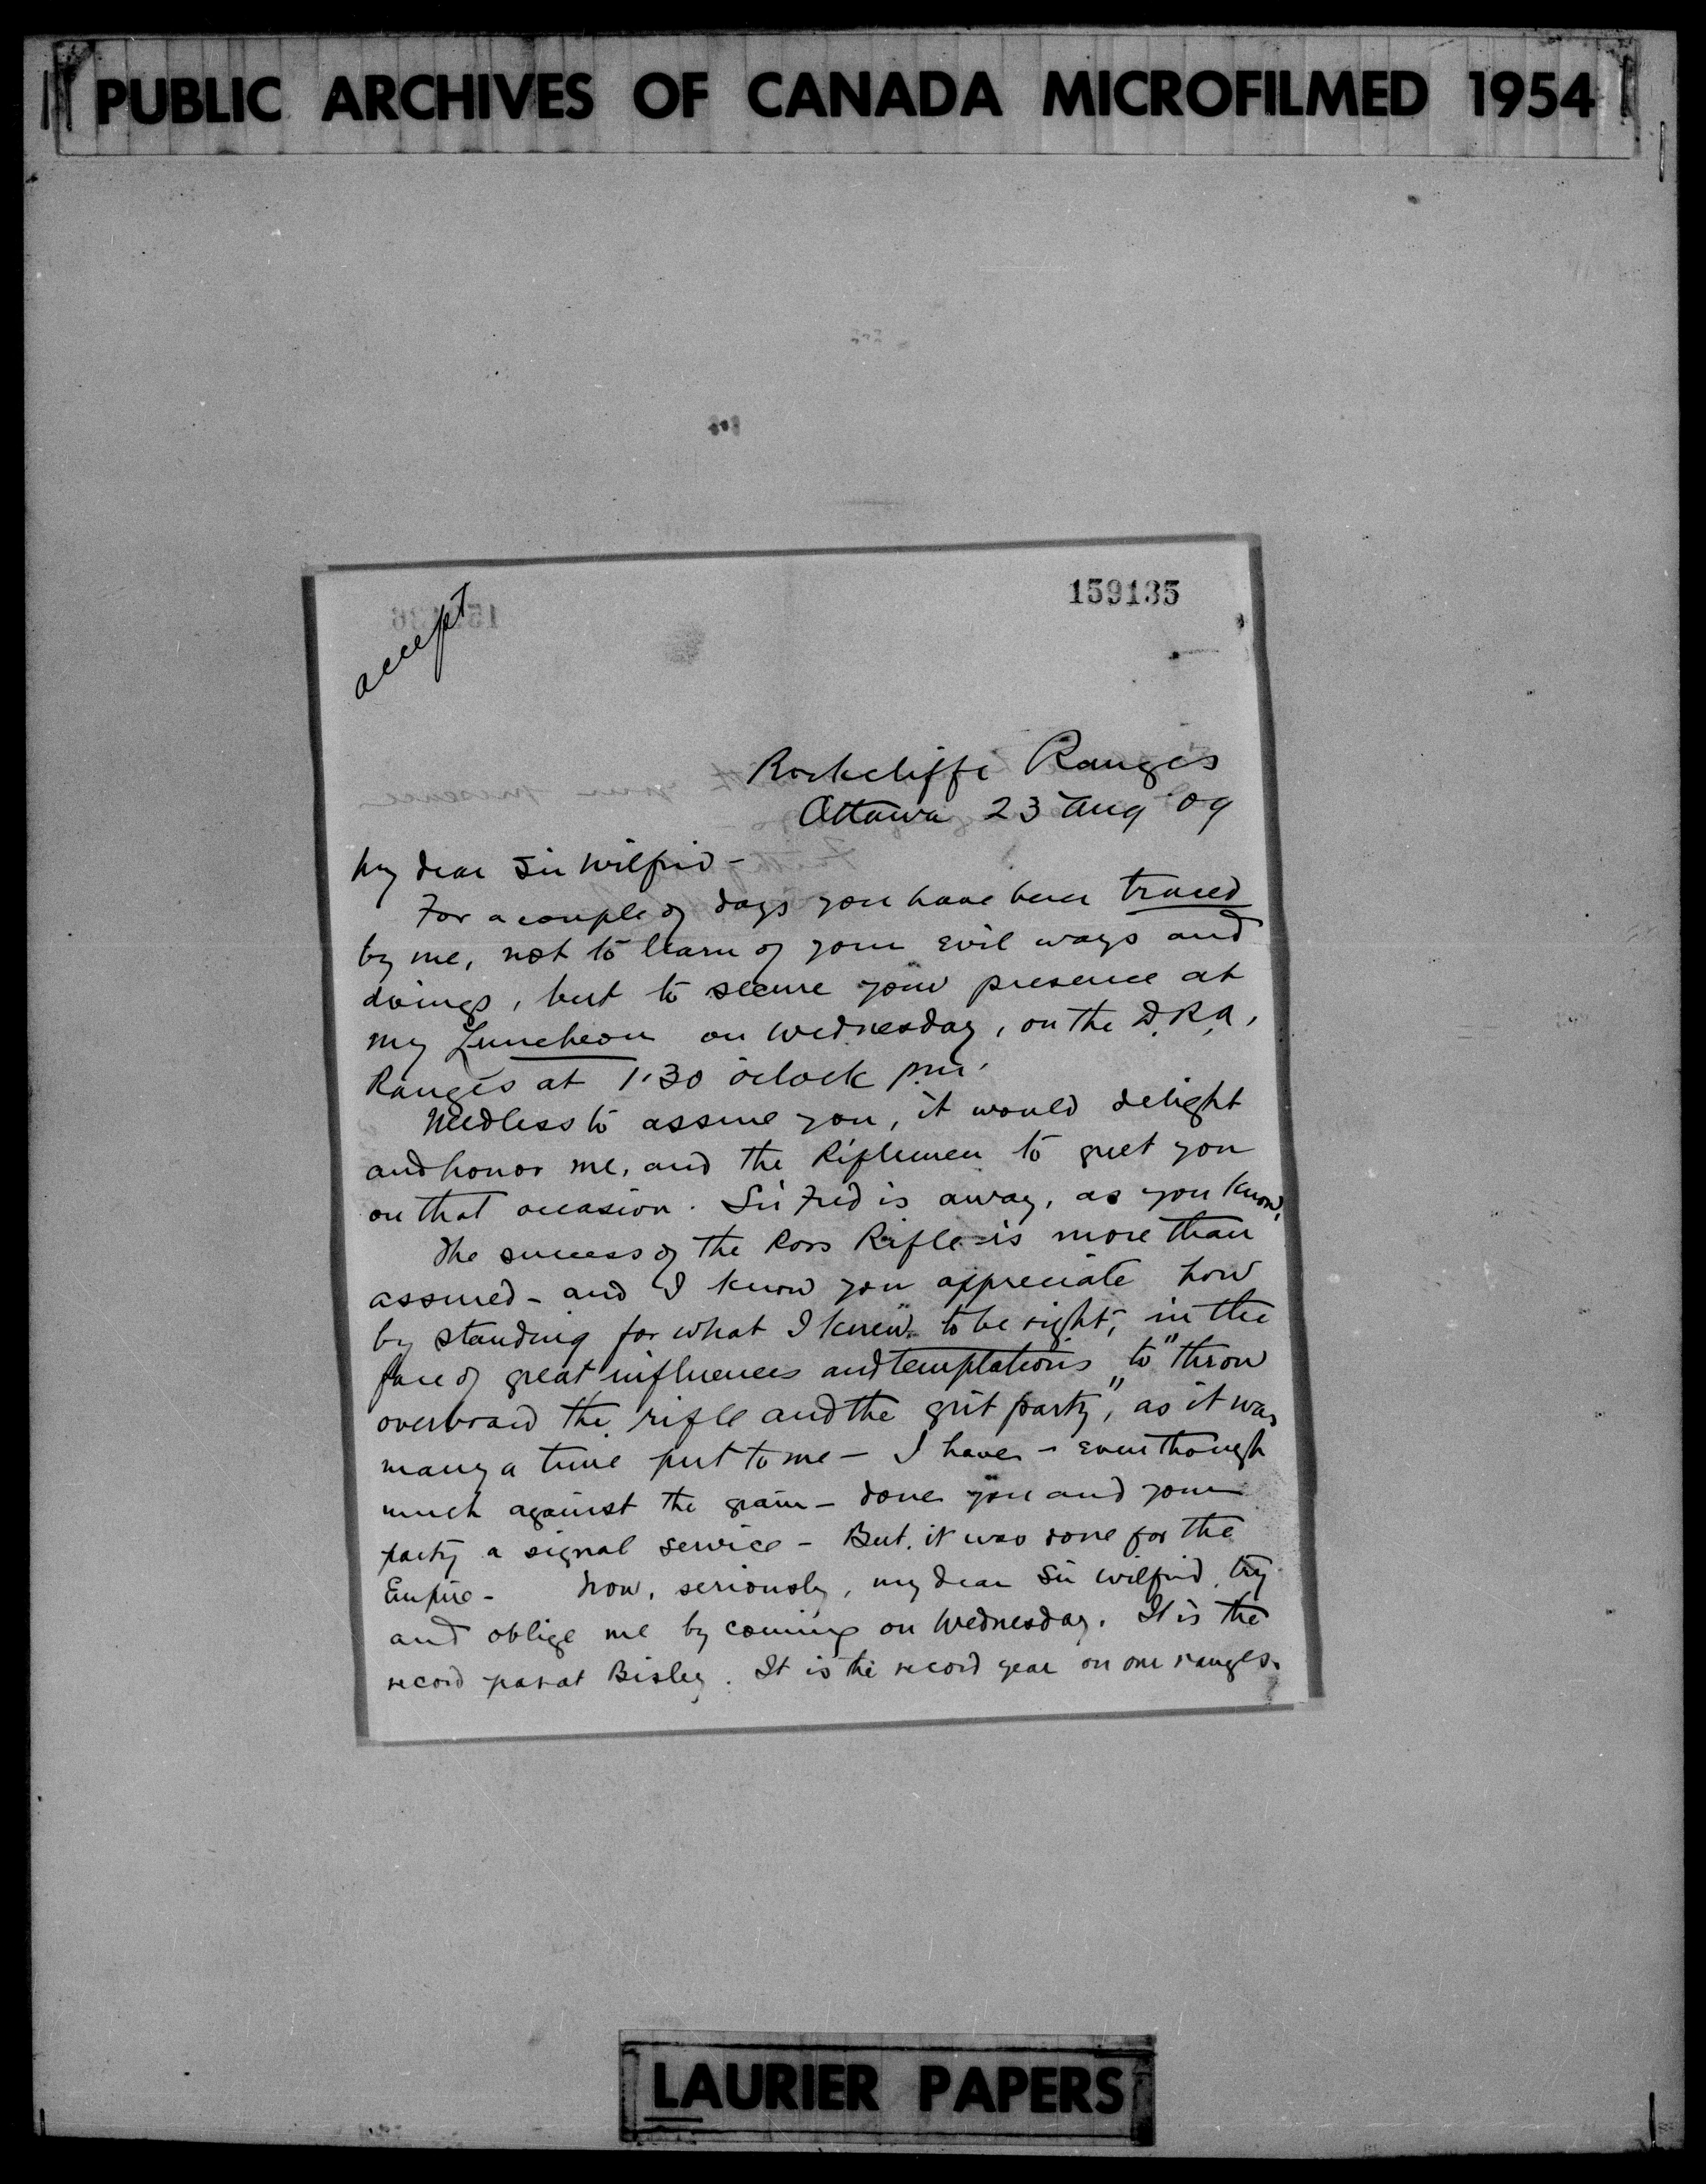 PUBLIC ARCHIVES OF CANADA MICROFILMED 1954
159135
accept
Rockcliffe Ranges
Ottawa 23 Aug '09
My dear Sir Wilfrid -
For a couple of days you have been traced
by me, not to learn of your evil ways and
doings, but to secure your presence at
my Luncheon on Wednesday, on the D.R.A.
Ranges at 1.30 o'clock p.m.
Needless to assure you, it would delight
and honor me, and the Riflemen to greet you
on that occasion. Sir Fred is away, as you know,
The success of the Ross Rifle is more than
assured - and I know you appreciate how
by standing for what I knew to be right, in the
face of great influences and temptations to "throw
overboard the rifle and the grit party", as it was
many a time put to me - I have - even though
much against the grain - done you and your
party a signal service - But, it was done for the
Empire - Now, seriously, my dear Sir Wilfrid, try
and oblige me by coming on Wednesday. It is the
record year at Bisley. It is the record year on our ranges.
LAURIER PAPERS